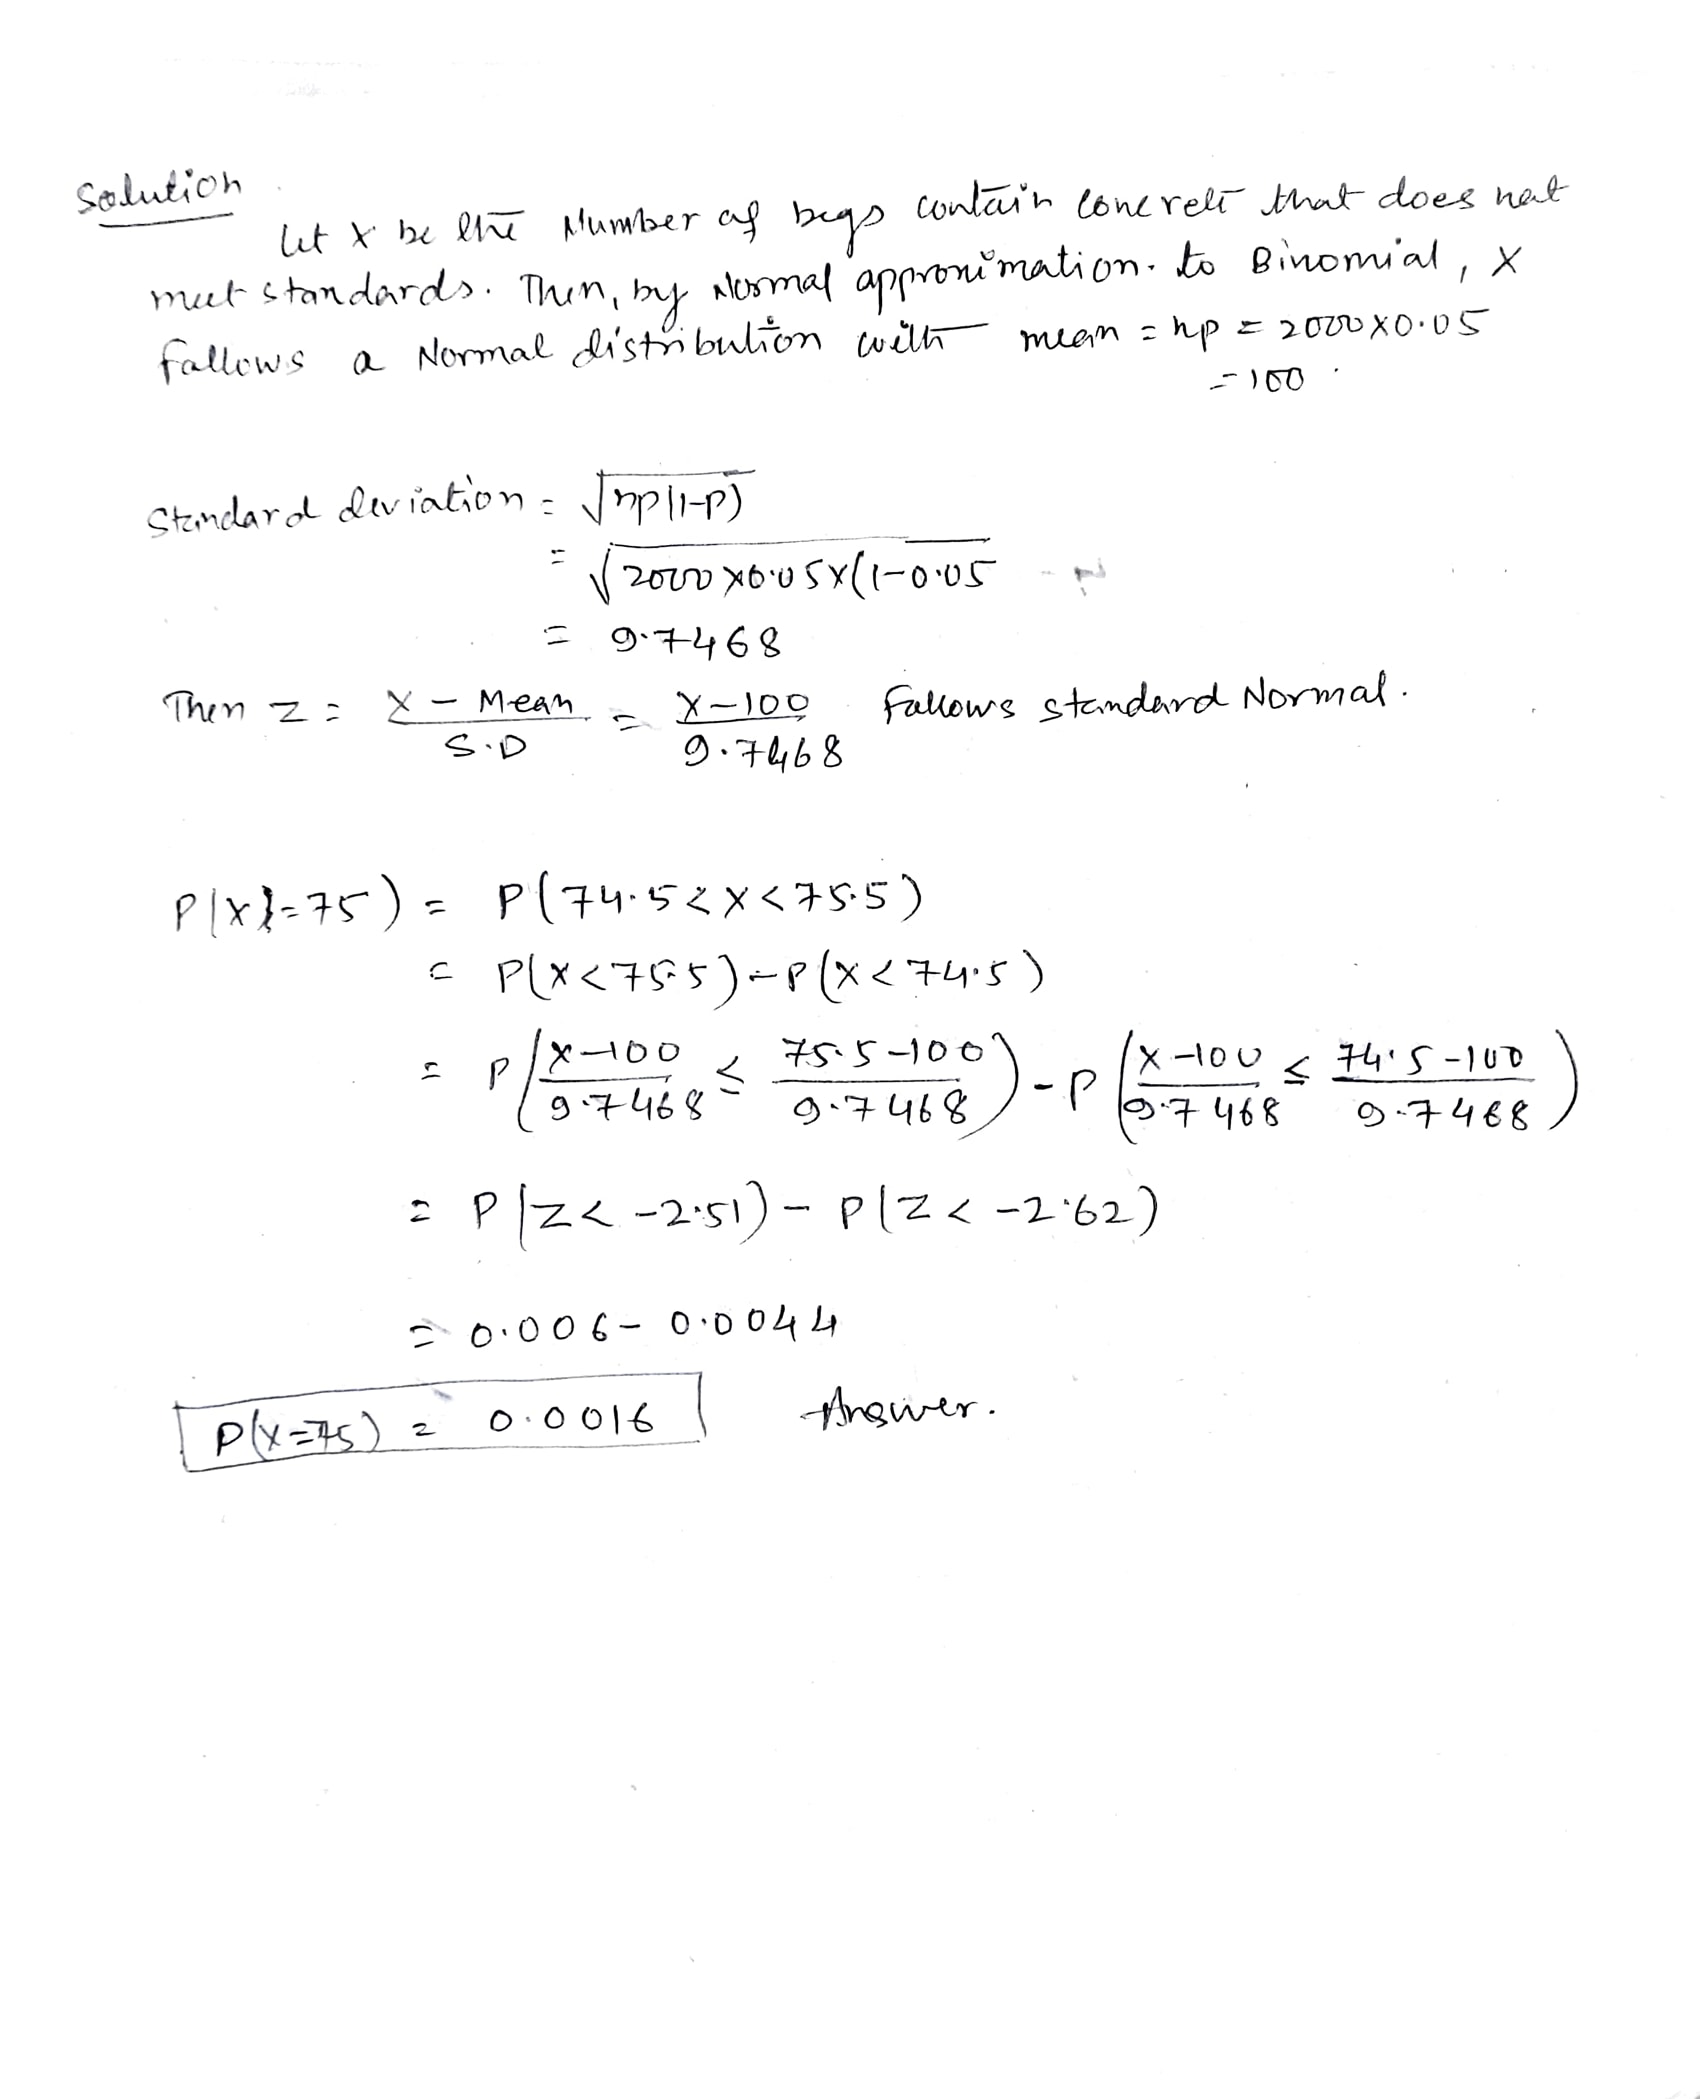 Solution
Let X be the Number of bags contain concrete that does not
meet standards. Then, by Normal approximation. to Binomial, X
follows a Normal distribution with mean = np = 2000×0.05
= 100.
Standard deviation = √np(1-p)
= √2000×0.05×(1-0.05
= 9.7468
Then Z = X - Mean / S.D = X-100 / 9.7468 follows standard Normal.
P(X=75) = P(74.5<X<75.5)
= P(X<75.5)-P(X<74.5)
= P(X-100 / 9.7468 ≤ 75.5-100 / 9.7468) - P(X-100 / 9.7468 ≤ 74.5-100 / 9.7468)
= P(Z< -2.51) - P(Z< -2.62)
= 0.006 - 0.0044
P(X=75) = 0.0016 Answer.